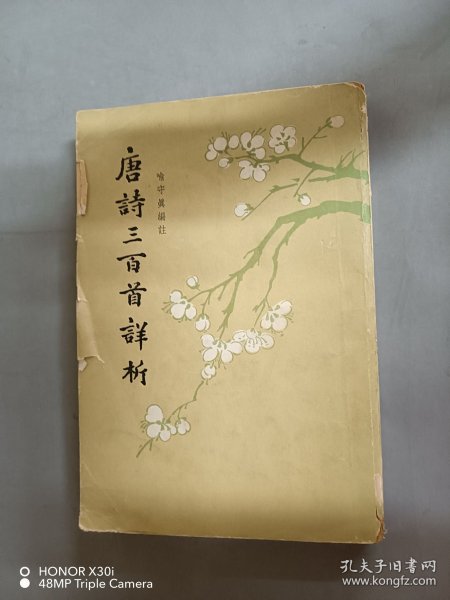 唐詩三百首詳析
喻守真編註
HONOR X30i
48MP Triple Camera
孔夫子旧书网
www.kongfz.com